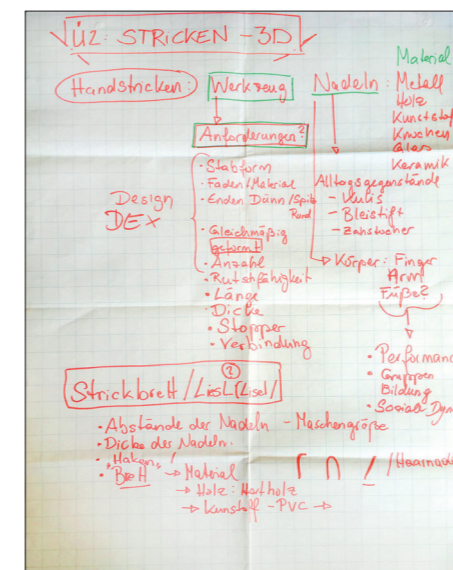 Ü2: STRICKEN - 3D
Handstricken: Werkzeug Nadeln: Material
Metall
Holz
Kunststof
Knochen
Glas
Keramik
Anforderungen?
Design
DEX
• Stabform
• Faden/Material
• Enden Dünn/Spitz
Rund
• Gleichmäßig
geformt
• Anzahl
• Rutschfähigkeit
• Länge
• Dicke
• Stopper
• Verbindung
Alltagsgegenstände
- Kulis
- Bleistift
- Zahnstocher
Körper: Finger
Arm
Füße?
• Performanc
• Gruppen
Bildung
• Soziale Dyn
②
Strickbrett/Liesl(Lisel/
• Abstände der Nadeln - Maschengröße
• Dicke der Nadeln.
• "Haken" !
• Brett → Material
/Haarnade
→ Holz: Hartholz
→ Kunstoff - PVC →